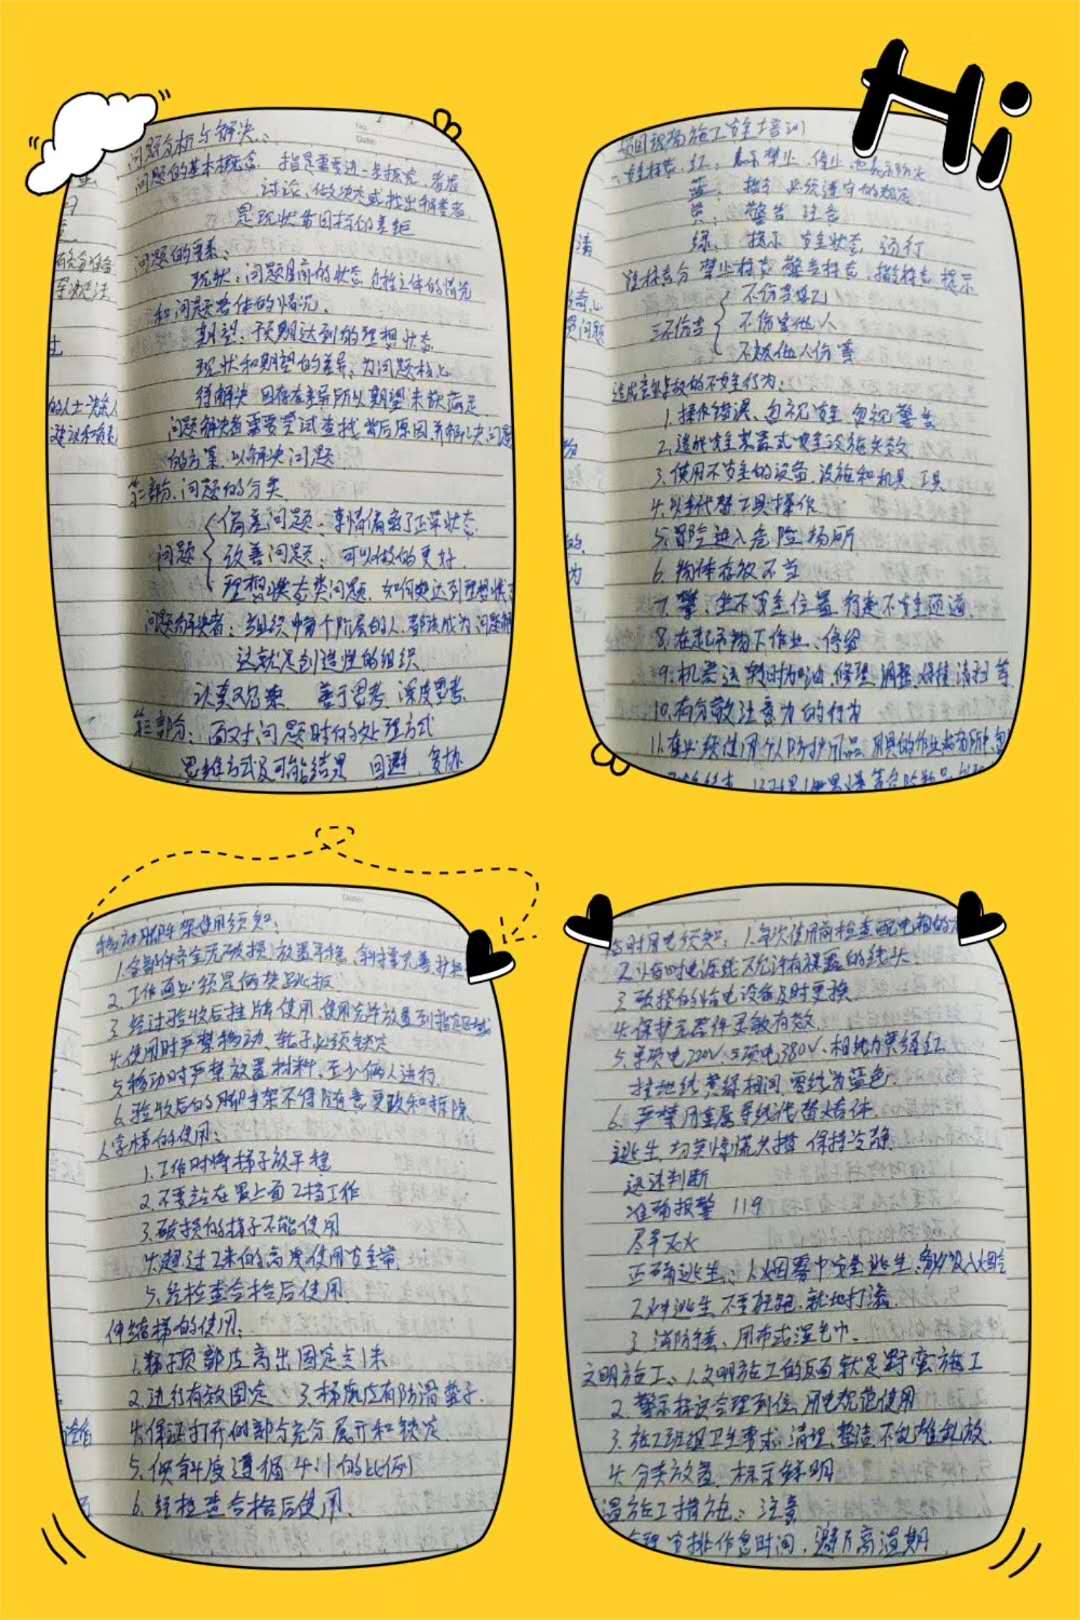 Hi
问题分析与解决：
问题的基本概念：指是需要进一步探究、考虑
讨论、做决定或找出
是现状与目标的差距
问题的要素：
现状：问题目前的状态 包括主体的情况
和问题客体的情况、
期望：预期达到的理想状态
现状和期望的差异：为问题核心
待解决 因存在差异所以期望未获满足
问题解决者需要尝试查找背后原因,并解决问题
的方案,以解决问题
第二部份、问题的分类
偏差问题：事情偏离了正常状态
问题 改善问题：可以做的更好
理想状态类问题、如何能达到理想状
问题解决者：当组织中每个阶层的人,都能成为问题解
这就是创造性的组织
认真观察 善于思考、深度思考
第三部份：面对问题时的处理方式
思维方式及可能结果 回避
项目现场施工安全培训
安全标志、红：表示禁止、停止 也表示防火
蓝：指令 必须遵守的规定
黄：警告 注意
绿：提示 安全状态 通行
禁止标志 警告标志、指令标志 提示
不伤害自己
三不伤害 不伤害他人
不被他人伤害
造成安全事故的不安全行为：
1、操作错误、忽视安全、忽视警告
2、造成安全装置失效
3、使用不安全的设备、设施和机具、工具
4、以手代替工具操作
5、冒险进入危险场所
6、物体存放不当
7、攀、坐不安全位置,行走不安全通道
8、在起吊物下作业、停留
9、机器运转时加油、修理、调整、焊接、清扫等
10、有分散注意力的行为
11、在必须使用个人防护用品、用具的作业或场所中,忽
移动脚手架使用须知：
1、全部件齐全无破损,放置平稳、斜撑完善
2、工作面必须是两块跳板
3、经过验收后挂牌使用,使用完毕放置到指定区域
4、使用时严禁移动、轮子必须锁定
5、移动时严禁放置材料、至少俩人进行
6、验收后的脚手架不得随意更改和拆除
人字梯的使用：
1、工作时将梯子放平稳
2、不要站在最上面2档工作
3、破损的梯子不能使用
4、超过2米的高度使用安全带
5、经检查合格后使用
伸缩梯的使用：
1、梯子顶部应高出固定点1米
2、进行有效固定 3、梯底应有防滑垫子
4、保证打开的部分充分展开和锁定
5、倾斜度遵循4：1的比例
6、经检查合格后使用
临时用电须知：1、每次使用前检查配电箱的
2、临时电源线不允许有裸露的线头
3、破损的给电设备及时更换
4、保护元器件灵敏有效
5、单项电220V、三项电380V、相线为黄绿红
接地线黄绿相间、零线为蓝色
6、严禁用金属导线代替熔体
逃生：切莫惊慌失措 保持冷静
迅速判断
准确报警 119
尽早灭火
正确逃生：1、烟雾中安全逃生、
2、逃生、不要狂跑、就地打滚
3、用布或湿毛巾、
文明施工：1、文明施工的反面就是野蛮施工
2、警示标识合理到位、用电规范使用
3、施工班组卫生要求、清理、整洁、不乱堆乱放
4、分类放置、标示鲜明
温施工措施：注意
合理安排作息时间、避开高温期